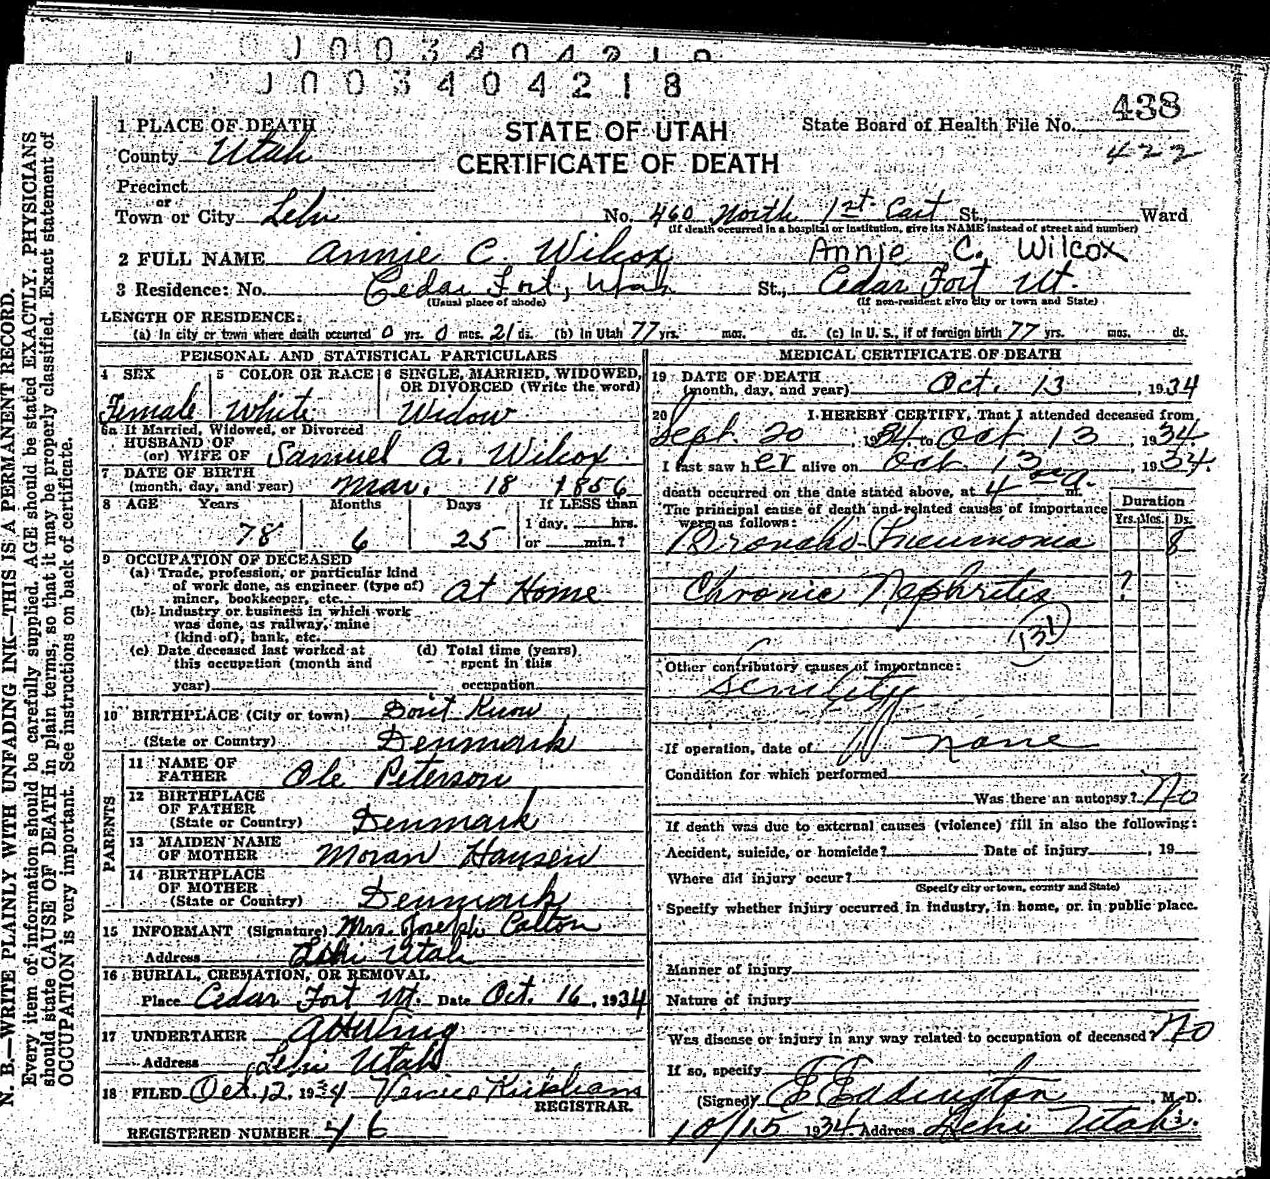 J003404218
J003404218
438
1 PLACE OF DEATH
STATE OF UTAH
State Board of Health File No.
County Utah
CERTIFICATE OF DEATH
422
Precinct
or
Town or City Lehi No. 460 North 1st East St., Ward
(If death occurred in a hospital or institution, give its NAME instead of street and number)
2 FULL NAME Annie C. Wilcox Annie C. Wilcox
3 Residence: No. Cedar Fort, Utah St., Cedar Fort Ut.
(Usual place of abode) (If non-resident give city or town and State)
LENGTH OF RESIDENCE:
(a) In city or town where death occurred 0 yrs. 0 mos. 21 ds. (b) In Utah 77 yrs. mos. ds. (c) In U.S., if of foreign birth 77 yrs. mos. ds.
PERSONAL AND STATISTICAL PARTICULARS
4 SEX 5 COLOR OR RACE 6 SINGLE, MARRIED, WIDOWED,
OR DIVORCED (Write the word)
Female White Widow
6a If Married, Widowed, or Divorced
HUSBAND OF
(or) WIFE OF Samuel A. Wilcox
7 DATE OF BIRTH
(month, day, and year) Mar. 18 1856
8 AGE Years Months Days If LESS than
1 day, hrs.
78 6 25 or min.?
9 OCCUPATION OF DECEASED
(a) Trade, profession, or particular kind
of work done, as engineer (type of)
miner, bookkeeper, etc. At Home
(b) Industry or business in which work
was done, as railway, mine
(kind of), bank, etc.
(c) Date deceased last worked at (d) Total time (years)
this occupation (month and spent in this
year) occupation
10 BIRTHPLACE (City or town) Don't Know
(State or Country) Denmark
PARENTS
11 NAME OF
FATHER Ole Peterson
12 BIRTHPLACE
OF FATHER
(State or Country) Denmark
13 MAIDEN NAME
OF MOTHER Moran Hansen
14 BIRTHPLACE
OF MOTHER
(State or Country) Denmark
15 INFORMANT (Signature) Mrs. Joseph Calton
Address Lehi Utah
16 BURIAL, CREMATION, OR REMOVAL
Place Cedar Fort Ut. Date Oct. 16, 1934
17 UNDERTAKER
Address Lehi Utah
18 FILED Oct. 12, 1934
REGISTRAR
REGISTERED NUMBER 46
MEDICAL CERTIFICATE OF DEATH
19 DATE OF DEATH
(month, day, and year) Oct. 13, 1934
20 I HEREBY CERTIFY, That I attended deceased from
Sept. 20, 1934, to Oct 13, 1934.
I last saw her alive on Oct 13, 1934.
death occurred on the date stated above, at 4 m.
The principal cause of death and related causes of importance
were as follows:
Duration
Yrs. Mos. Ds.
Broncho Pneumonia 8
Chronic Nephritis ?
131
Other contributory causes of importance:
Senility
If operation, date of none
Condition for which performed
Was there an autopsy? No
If death was due to external causes (violence) fill in also the following:
Accident, suicide, or homicide? Date of injury , 19
Where did injury occur?
(Specify city or town, county and State)
Specify whether injury occurred in industry, in home, or in public place.
Manner of injury
Nature of injury
Was disease or injury in any way related to occupation of deceased No
If so, specify
(Signed) E Eddington, M.D.
10/15 1934 Address Lehi Utah.
N. B.—WRITE PLAINLY WITH UNFADING INK—THIS IS A PERMANENT RECORD.
Every item of information should be carefully supplied. AGE should be stated EXACTLY. PHYSICIANS
should state CAUSE OF DEATH in plain terms, so that it may be properly classified. Exact statement of
OCCUPATION is very important. See instructions on back of certificate.